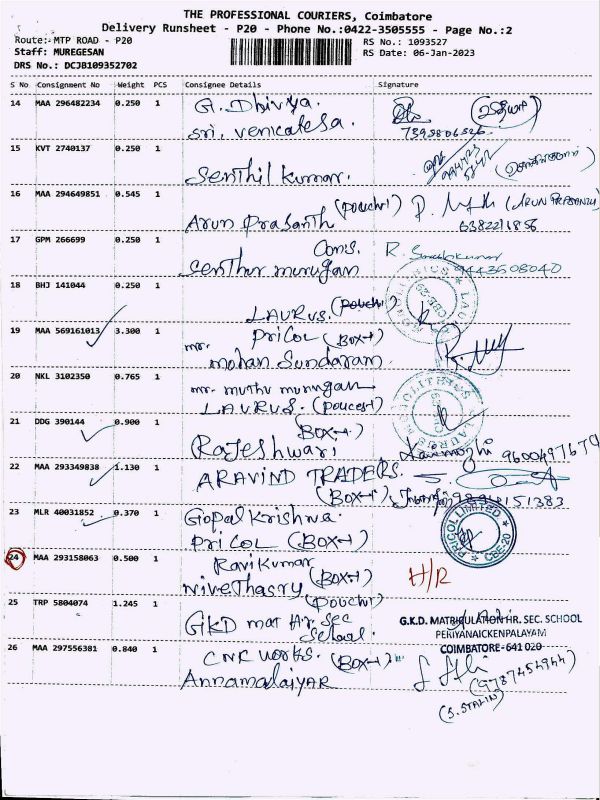 THE PROFESSIONAL COURIERS, Coimbatore
Delivery Runsheet - P20 - Phone No.:0422-3505555 - Page No.:2
Route: MTP ROAD - P20
RS No.: 1093527
Staff: MUREGESAN
RS Date: 06-Jan-2023
DRS No.: DCJB109352702
S No Consignment No Weight PCS Consignee Details Signature
14 MAA 296482234 0.250 1 G. Dhivya.
Sri. Venkatesa. 7395806526
15 KVT 2740137 0.250 1
Senthil Kumar.
16 MAA 294649851 0.545 1 (Pouch1) (ARUN PRASANTH)
Arun Prasanth 6382211856
17 GPM 266699 0.250 1 Cons. R.
Senthur murugan 9443508040
18 BHJ 141044 0.250 1
LAURUS. (Pouch1)
19 MAA 569161013 3.300 1 PRICOL (BOX-1)
mr. mohan Sundaram.
20 NKL 3102350 0.765 1 mr. muthu murugan
LAURUS. (Pouch1)
21 DDG 390144 0.900 1 (BOX-1)
Rajeshwari
22 MAA 293349838 1.130 1 ARAVIND TRADERS.
(BOX-1)
23 MLR 40031852 0.370 1 Gopal Krishna.
PRICOL (BOX-1)
PRICOL LIMITED
CBE-20
24 MAA 293158063 0.500 1 Ravikumar
Nivethasry (BOX-1) H/R
25 TRP 5804074 1.245 1 (Pouch1)
GKD mat Hr. Sec
School.
G.K.D. MATRICULATION HR. SEC. SCHOOL
PERIYANAICKENPALAYAM
COIMBATORE-641 020
26 MAA 297556381 0.840 1 CNR Works. (BOX-1)
Annamalaiyar (9787454944)
(S. STALIN)